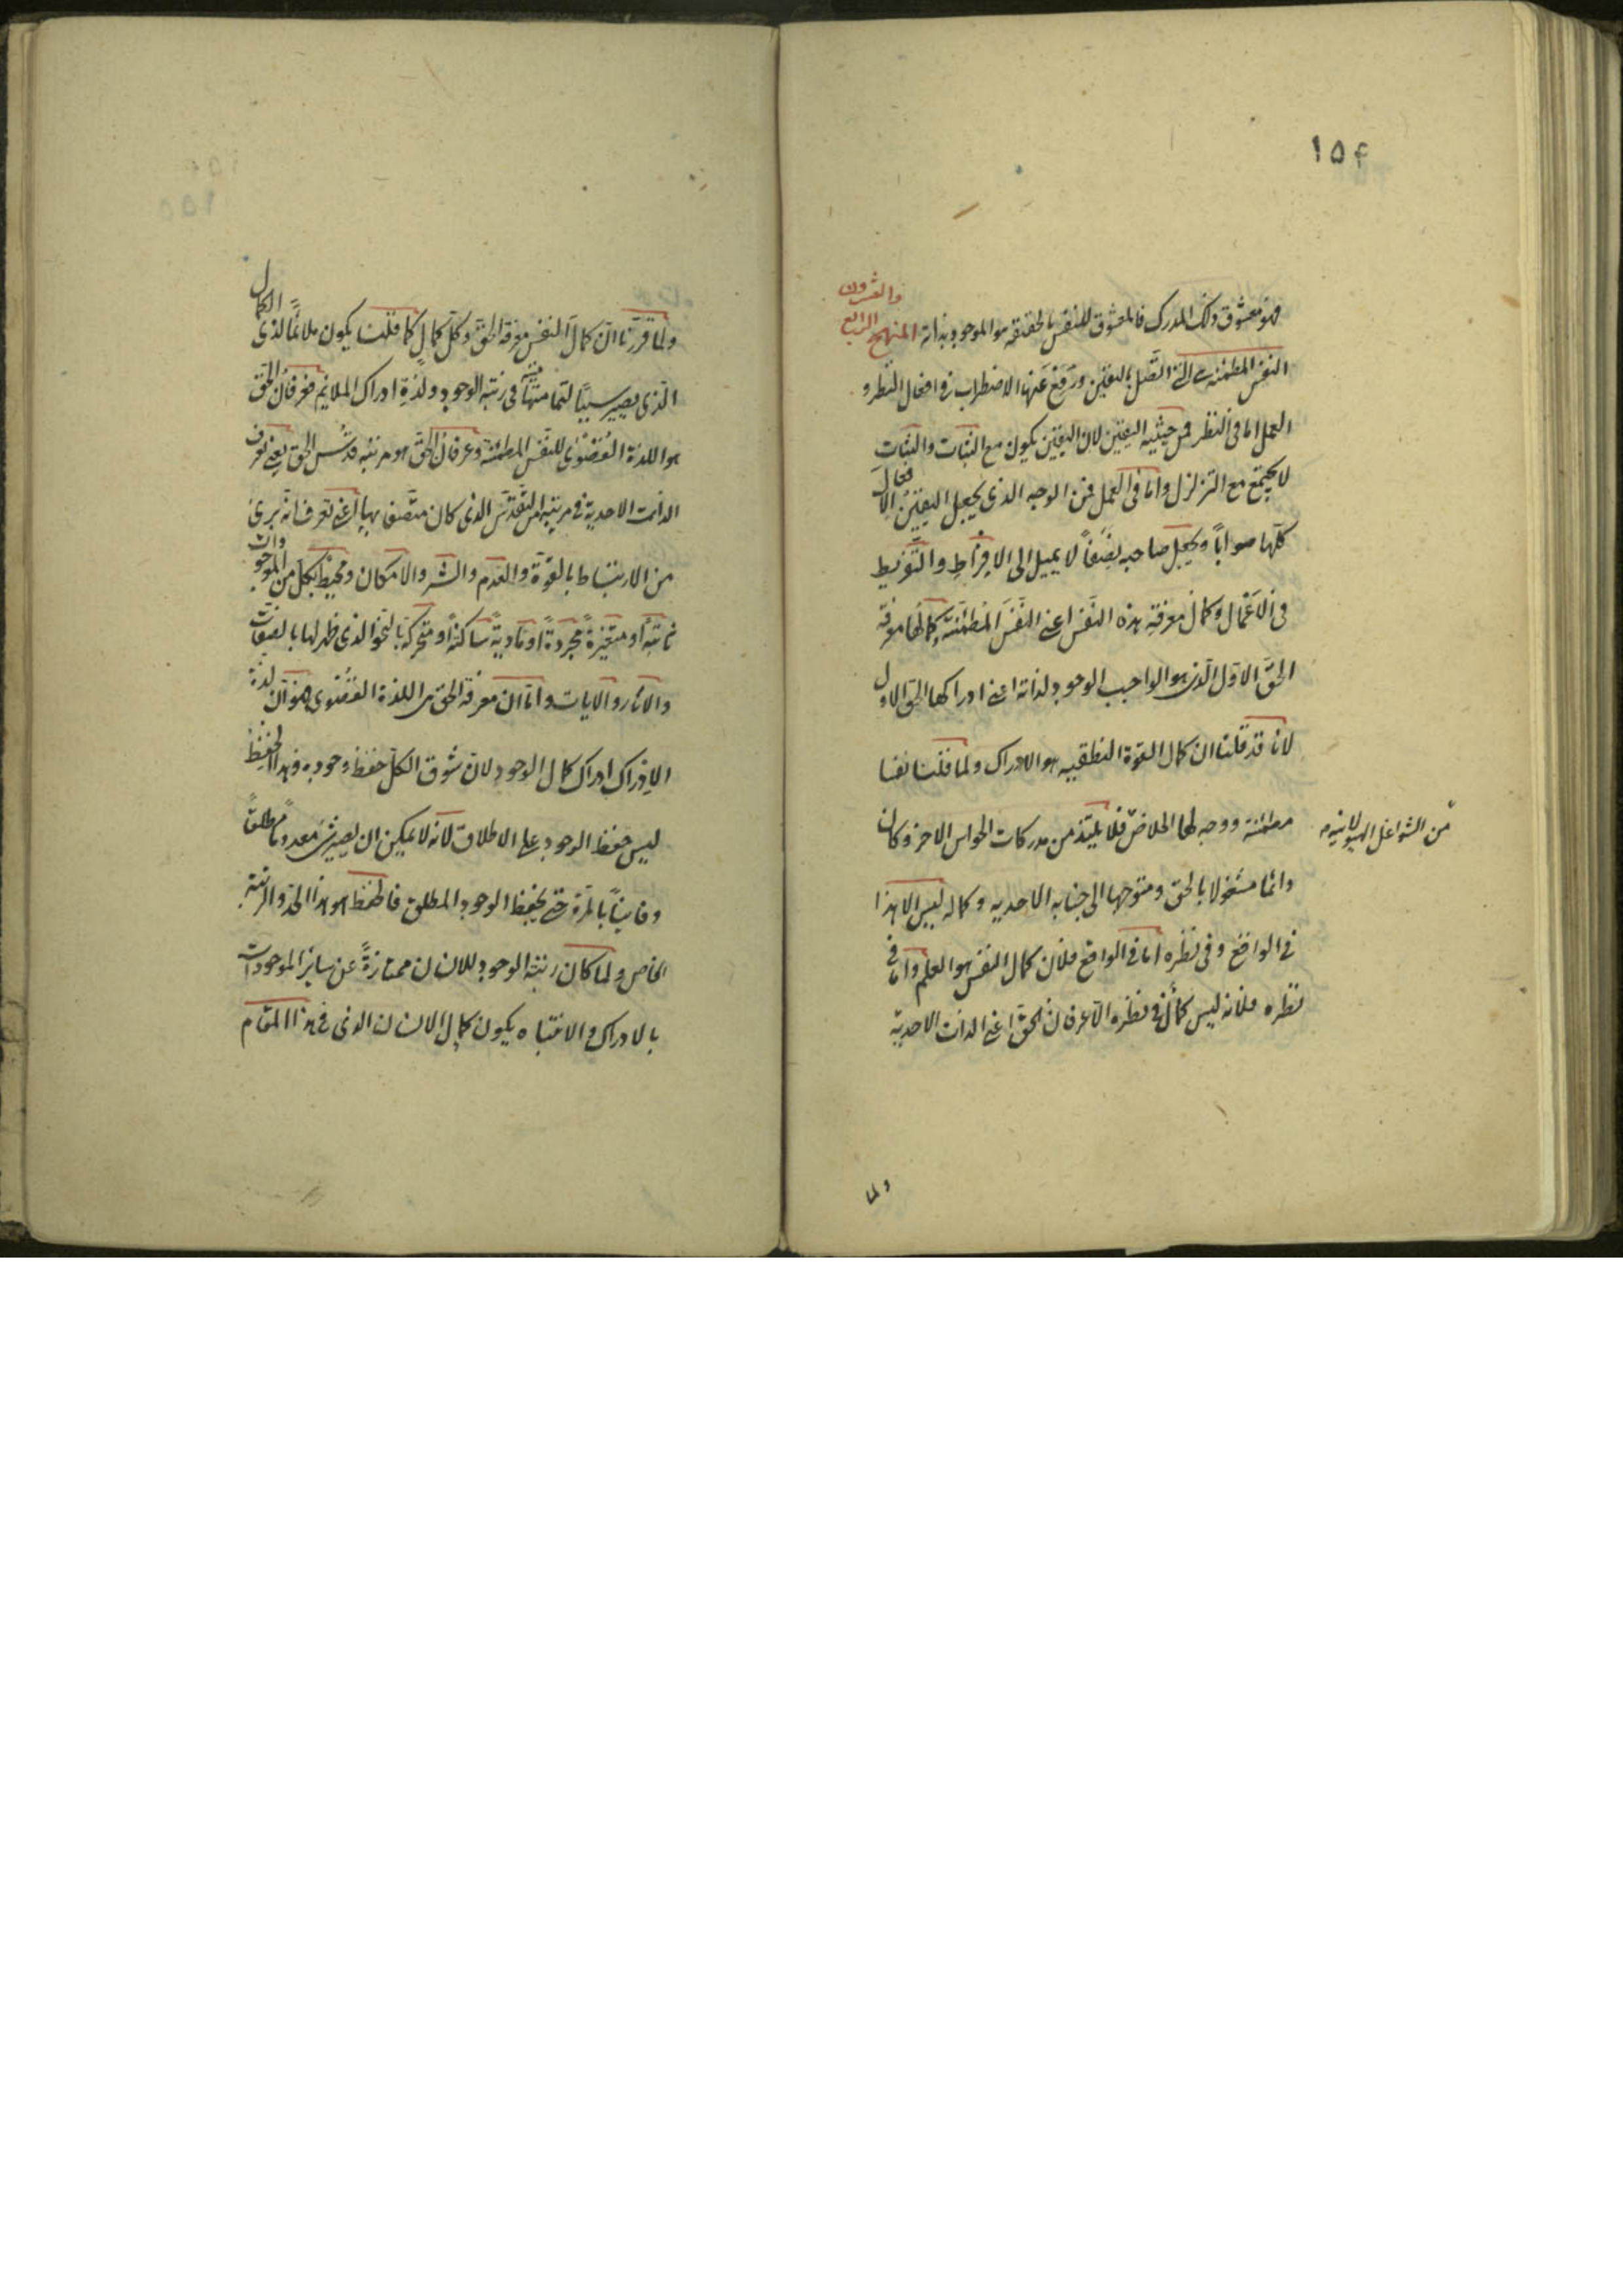 ١٥۴
فهو معشوق ذلك المدرك فالمعشوق للنفس بالحقيقة هو الموجود بذاته المنهج الرابع
والعشرون
النفس المطمئنة هى التى اتصل باليقين ورفع عنها الاضطراب فى افعال النظر و
العمل اما فى النظر فمن حيثية اليقين لان اليقين يكون مع الثبات والثبات
لا يجتمع مع التزلزل واما فى العمل فمن الوجه الذى يجعل اليقين الافعال
كلها صوابا ويجعل صاحبه لا يميل الى الافراط والتفريط
فى الاعمال وكمال معرفة هذه النفس اعنى النفس المطمئنة وكمالها معرفة
الحق الاول الذى هو الواجب الوجود لذاته اعنى ادراكها الحق الاول
لانا قد قلنا ان كمال القوة النطقيه هو الادراك ولما قلنا نفسا
مطمئنة ووجه لها الخلاص فلا يلتذ من مدركات الحواس الاخر وكان
من الشواغل الهيولانيه
دائما مشغولا بالحق ومتوجها الى جنابه الاحديه وكماله ليس الا هذا
فى الواقع وفى نظره اما فى الواقع فلان كمال النفس هو العلم واما فى
نظره فلانه ليس كمال فى نظره الا عرفان الحق اعنى الذات الاحدية
ولما
ولما قررنا ان كمال النفس معرفة الحق وكل كمال كما قلنا يكون ملائما لذى الكمال
الذى يصير سببا لتماميته فى رتبة الوجود ولذة ادراك الملايم فعرفان الحق
هو اللذة القصوى للنفس المطمئنة وعرفان الحق هو مرتبه قدس الحق يعنى تعرف
الذات الاحدية فى مرتبة التقدس الذى كان متصف بها اعنى تعرف انه برئ
من الارتباط بالقوة والعدم والشر والامكان ومحيط بكل من الموجودات
ثابتة او متغيرة مجردة او مادية ساكنة او متحركة بالنحو الذى ظهر لها بالصفات
والاثار والايات واما ان معرفة الحق هى اللذة القصوى فهو ان لذة
الادراك ادراك كمال الوجود لان شوق الكل حفظ وجوده وهذا الحفظ
ليس حفظ الوجود على الاطلاق لانه لا يمكن ان يصير شئ معدوما مطلقا
وفانيا بالمرة حتى يحفظ الوجود المطلق فالحفظ هو هذا الحد والرتبة
الخاص ولما كان رتبة الوجود للانسان ممتازة عن ساير الموجودات
بالادراك والانتباه يكون كمال الانسان الذى فى هذا المقام